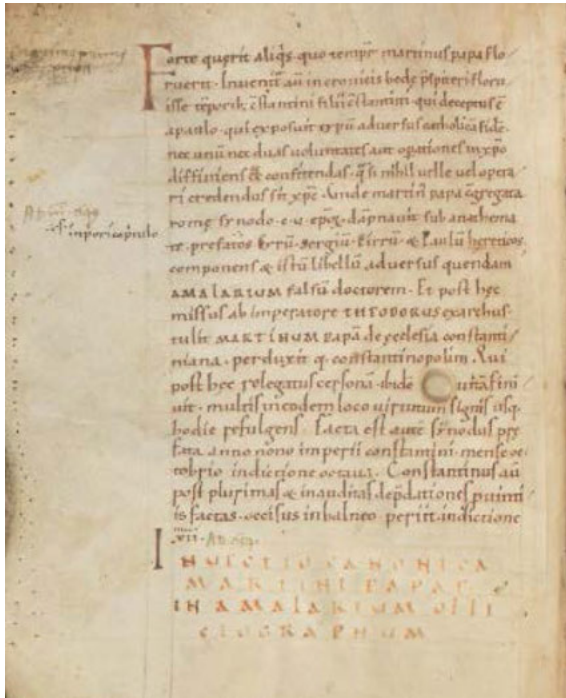 Forte querit aliqs quo tempr martinus papa flo
ruerit. Invenit aū in cronicis bede p̄sbiteri floru
isse tēporib; c̄stantini filii c̄stantini. qui deceptus ē
a paulo. qui exposuit typū adversus catholicā fidē.
nec unū nec duas voluntates aut opationes in xp̄o
diffiniens & confitendas. qͣsi nihil velle vel opera
ri credendus sit xp̄c. Unde martin papa c̄gregata
rome synodo. c. v. ep̄oꝝ. dāpnavit sub anathema
te. prefatos kyrū. sergiū. pirrū. & Paulū hereticos.
componens & istū libellū adversus quendam
AMALARIUM falsū doctorem. Et post hec
missus ab imperatore THEODORUS exarchus.
tulit MARTINUM papā de ecclesia constanti
niana. perduxit q. constantinopolim. Qui
post hec relegatus cersonā. ibidē vitā fini
vit. multis in eodem loco virtutum signis usq.
hodie refulgens. Facta est autē synodus pre
fata anno nono imperii constantini. mense oc
tobrio indictione octava. Constantinus aū
post plurimas & inauditas dep̄dationes p̄vinti
is factas. occisus in balneo periit. indictione
xii.
INVECTIO CANONICA
MARTINI PAPAE
IN AMALARIUM OFFI
CIOGRAPHUM